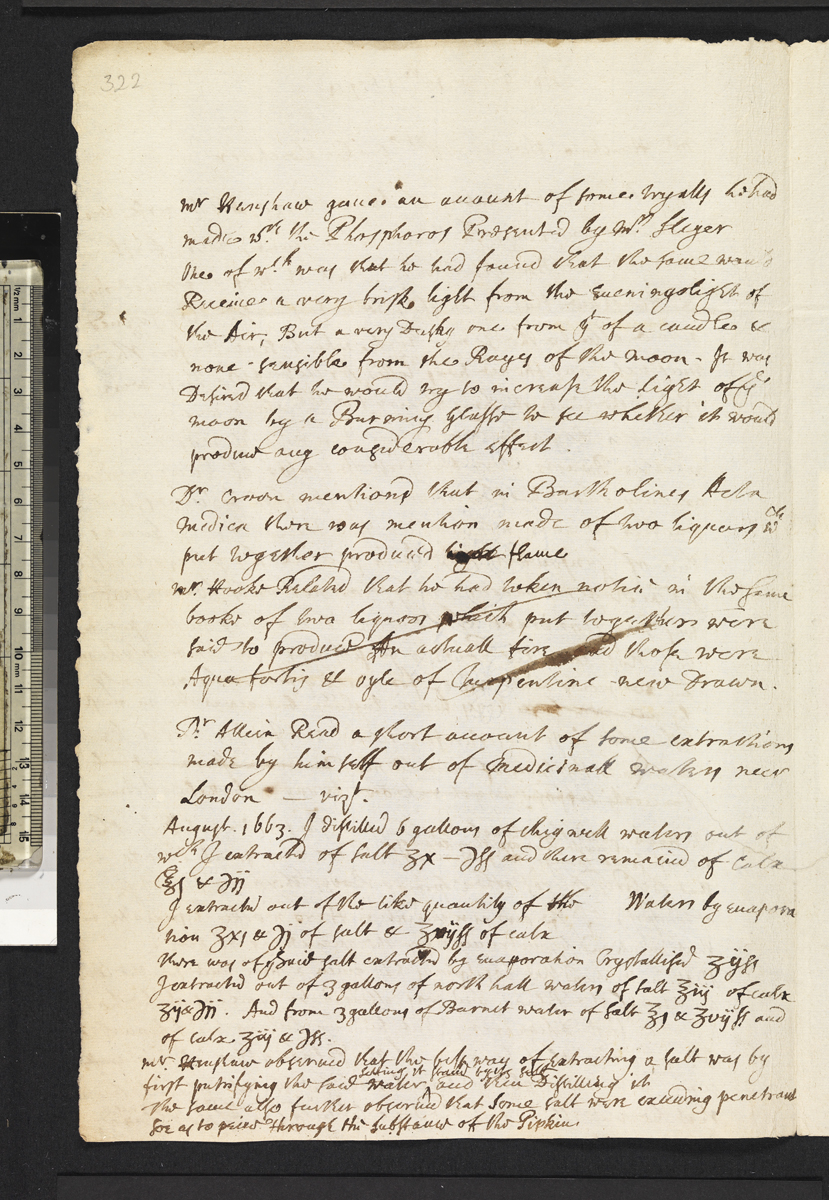 322
mr Henshaw gave an account of some tryalls he had
made wth the Phosphoros Presented by Mr Sleger
One of wch was that he had found that the same would
Receive a very brisk light from the Evening light of
the Air, But a very Dusky one from yt of a candle &
none sensible from the Rayes of the moon - It was
Desired that he would try to increase the light of ye
moon by a Burning Glasse to see whither it would
produce any considerable effect.
Dr Croon mentiond that in Bartholines Acta
medica there was mention made of two liquors wch
put together produced flame
mr Hooke Related that he had taken notice in the same
booke of two liquors which put together were
said to produce An actuall fire and those were
Aqua fortis & oyle of Turpentine new Drawn.
Dr Allein Read a short account of some extractions
made by himself out of medicinall waters neer
London - vizt.
August. 1663. I distilled 6 gallons of chigwell waters out of
wch I extracted of salt ʒx - ℈ss and there remained of calx
ʒj & ℈ij
I extracted out of the like quantity of the Waters by evapora
tion ʒxj & ℈j of salt & ʒvijss of calx
there was of said salt extracted by Evaporation Crystallised ʒijss
I extracted out of 3 gallons of north hall waters of salt ʒiij of calx
ʒij & ℈ij. And from 3 gallons of Barnet water of salt ʒj & ʒvijss and
of calx ʒiij & ℈ss.
mr Henshaw observed that the best way of extracting a salt was by
letting it stand by it self
first putrifying the said water, and then Distilling it
the same also further observed that some salt were exceeding penetrant
soe as to peirce through the substance of the Pipkin
1/2 mm 1 2 3 4 5 6 7 8 9 10 mm 11 12 13 14 15